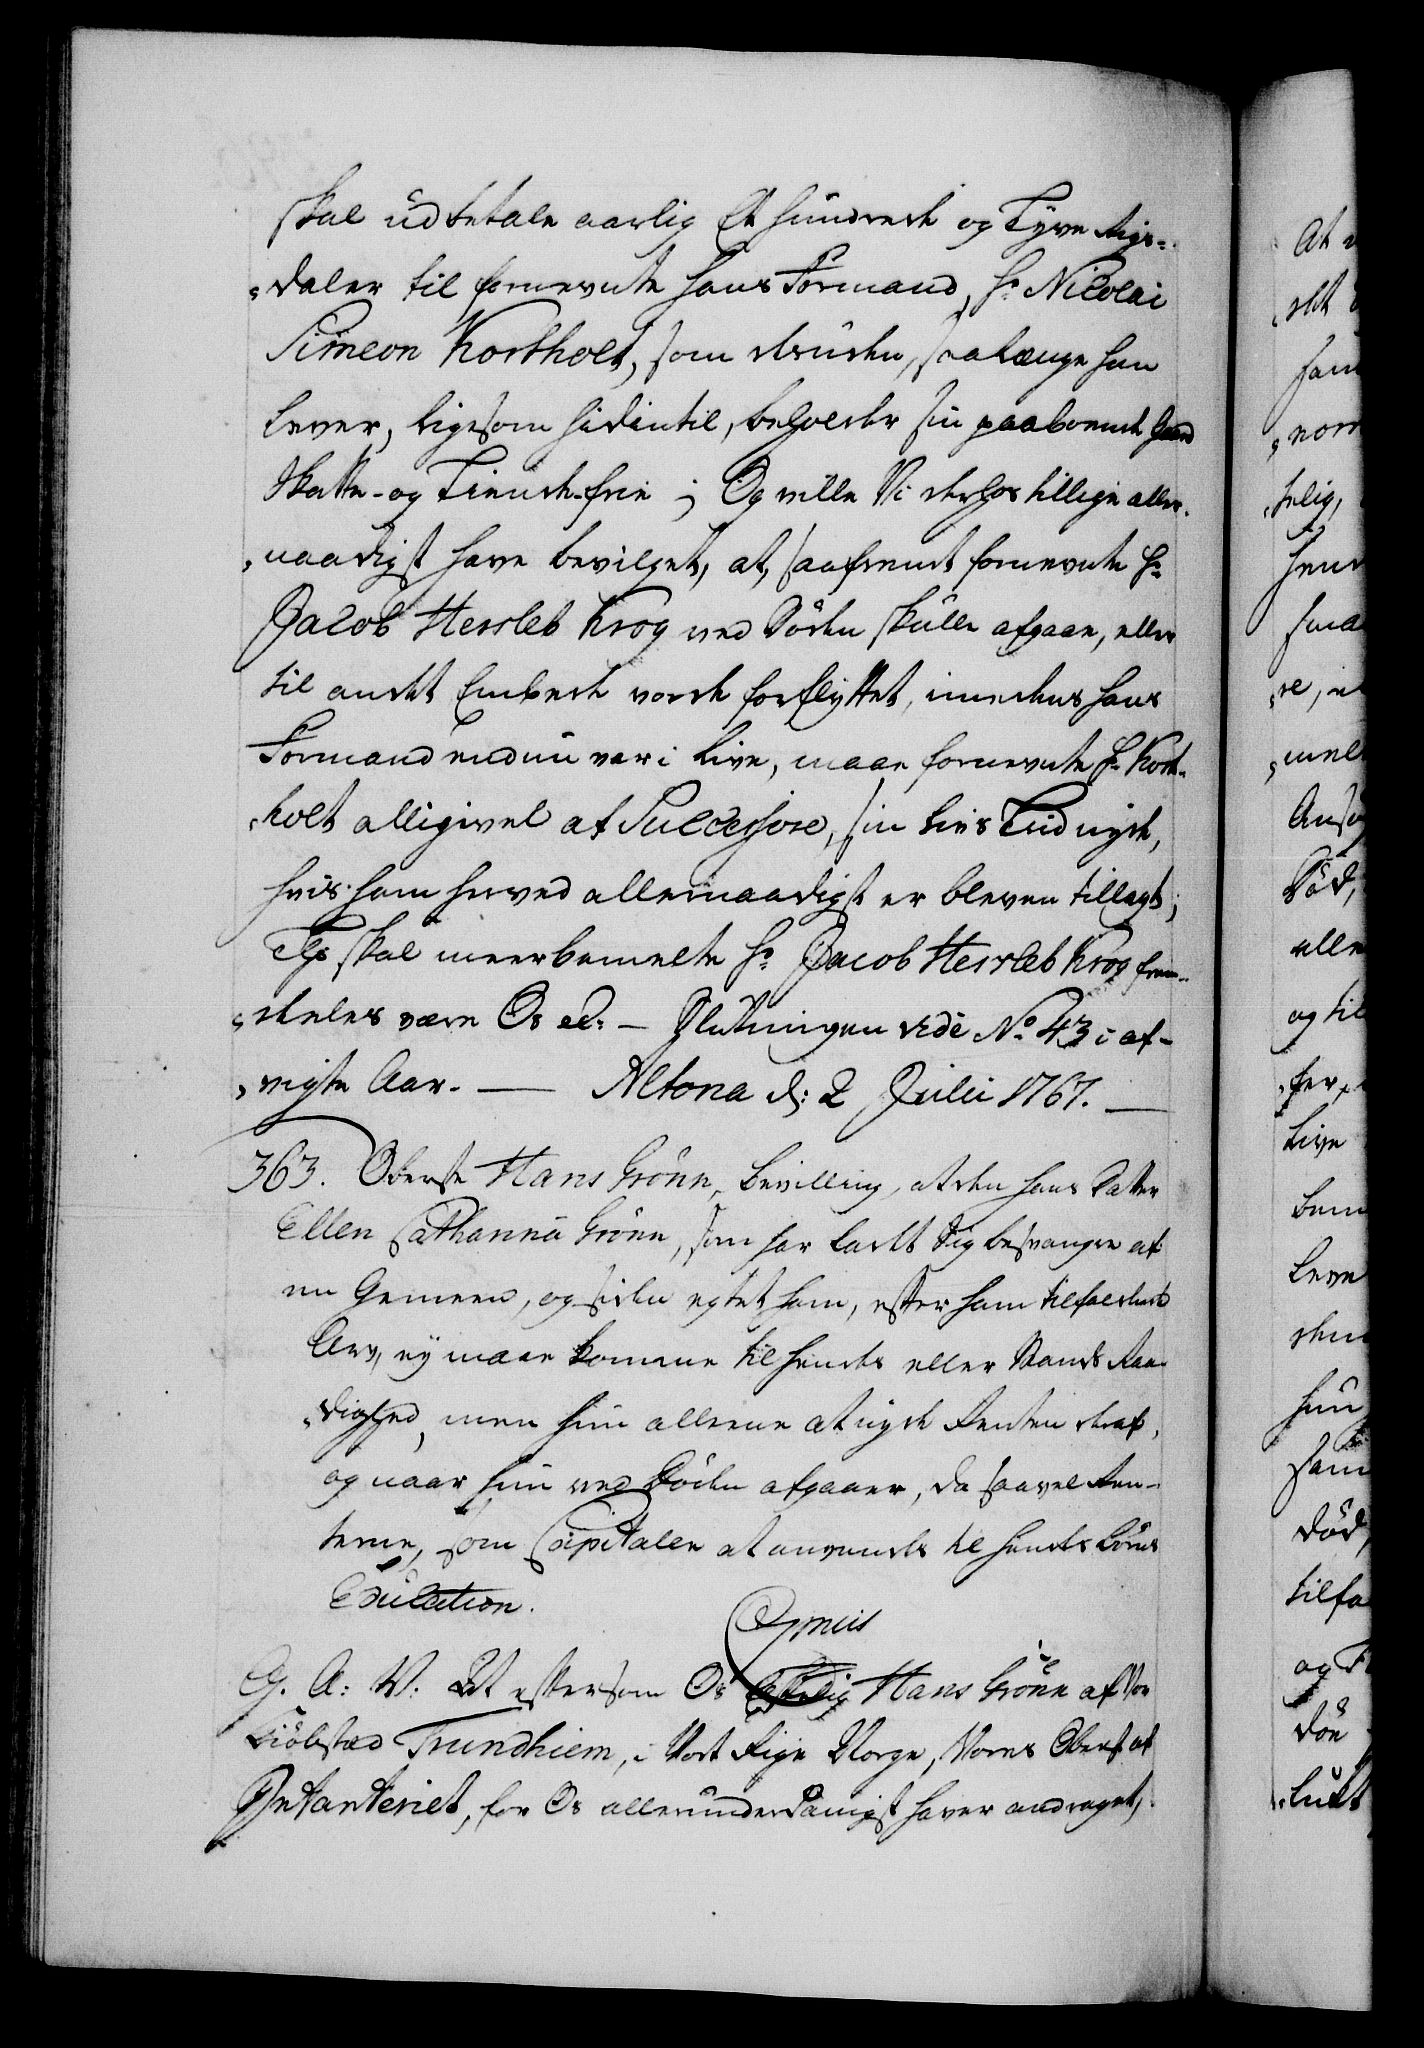 skal udbetale aarlig Et hundrede og Tyve Rigs-
daler til fornevnte hans Formand, Hr. Nicolai
Simeon Kortholt, som desuden, saalænge han
lever, ligesom hidindtil, beholder sin paaboende Gaard
Skatte- og Tiende-frie; Og ville Vi derhos tillige aller-
naadigst have bevilget, at, saafremt fornevnte Hr.
Jacob Hersleb Krog ved Døden skulle afgaae, eller
til andet Embede vorde forflyttet, imedens hans
Formand endnu var i Live, maae fornevnte Hr. Kort-
holt alligivel af Successore, sin Livs Tiid nyde,
hvis ham herved allernaadigst er bleven tillagt;
Thi skal meerbemelte Hr. Jacob Hersleb Krog frem-
deles være Os ec: — Slutningen vide No. 43 i af-
vigte Aar. — Altona d: 2 Julii 1767. —
363. Oberste Hans Grönn, Bevilling, at den hans Datter
Ellen Cathanna Grönn, som har ladet sig besvangre af
en Gemeen, og siden egtet ham, efter ham tilfaldende
Arv, ey maae komme til hendes eller Mands Raa-
dighed, men hun alleene at nyde Renten deraf,
og naar hun ved Døden afgaaer, da saavel Ren-
terne, som Capitalen at anvendes til hendes Børns
Education.
C. A: V: At eftersom Os Elskelig Hans Grönn af Vor
Kiöbstæd Trundhiem, i Vort Rige Norge, Vores Oberst af
Infanteriet, for Os allerunderdanigst haver andraget,